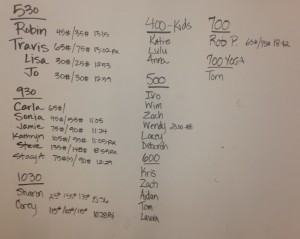 530
Robin 45#/35# 13:15
Travis 65#/75# 13:02 RX
Lisa 30#/25# 12:53
Jo 30#/30# 12:59
930
Carla 65#/
Sonia 11:05
Jamie 75#/90# 11:24
Kathryn 105#/95# 11:05
Steve 135#/145#
Stacy A 75#/90# 12:29
1030
Sharon
Corey 115#/115#
400-Kids
Katie
Lulu
Anna
500
Ivo
Wim
Zach
Wendy
Lacey
Deborah
600
Kris
Zach
Aidan
Tom
Laura
700
Rob P. 65#/75# 18:42
700 YOGA
Tom